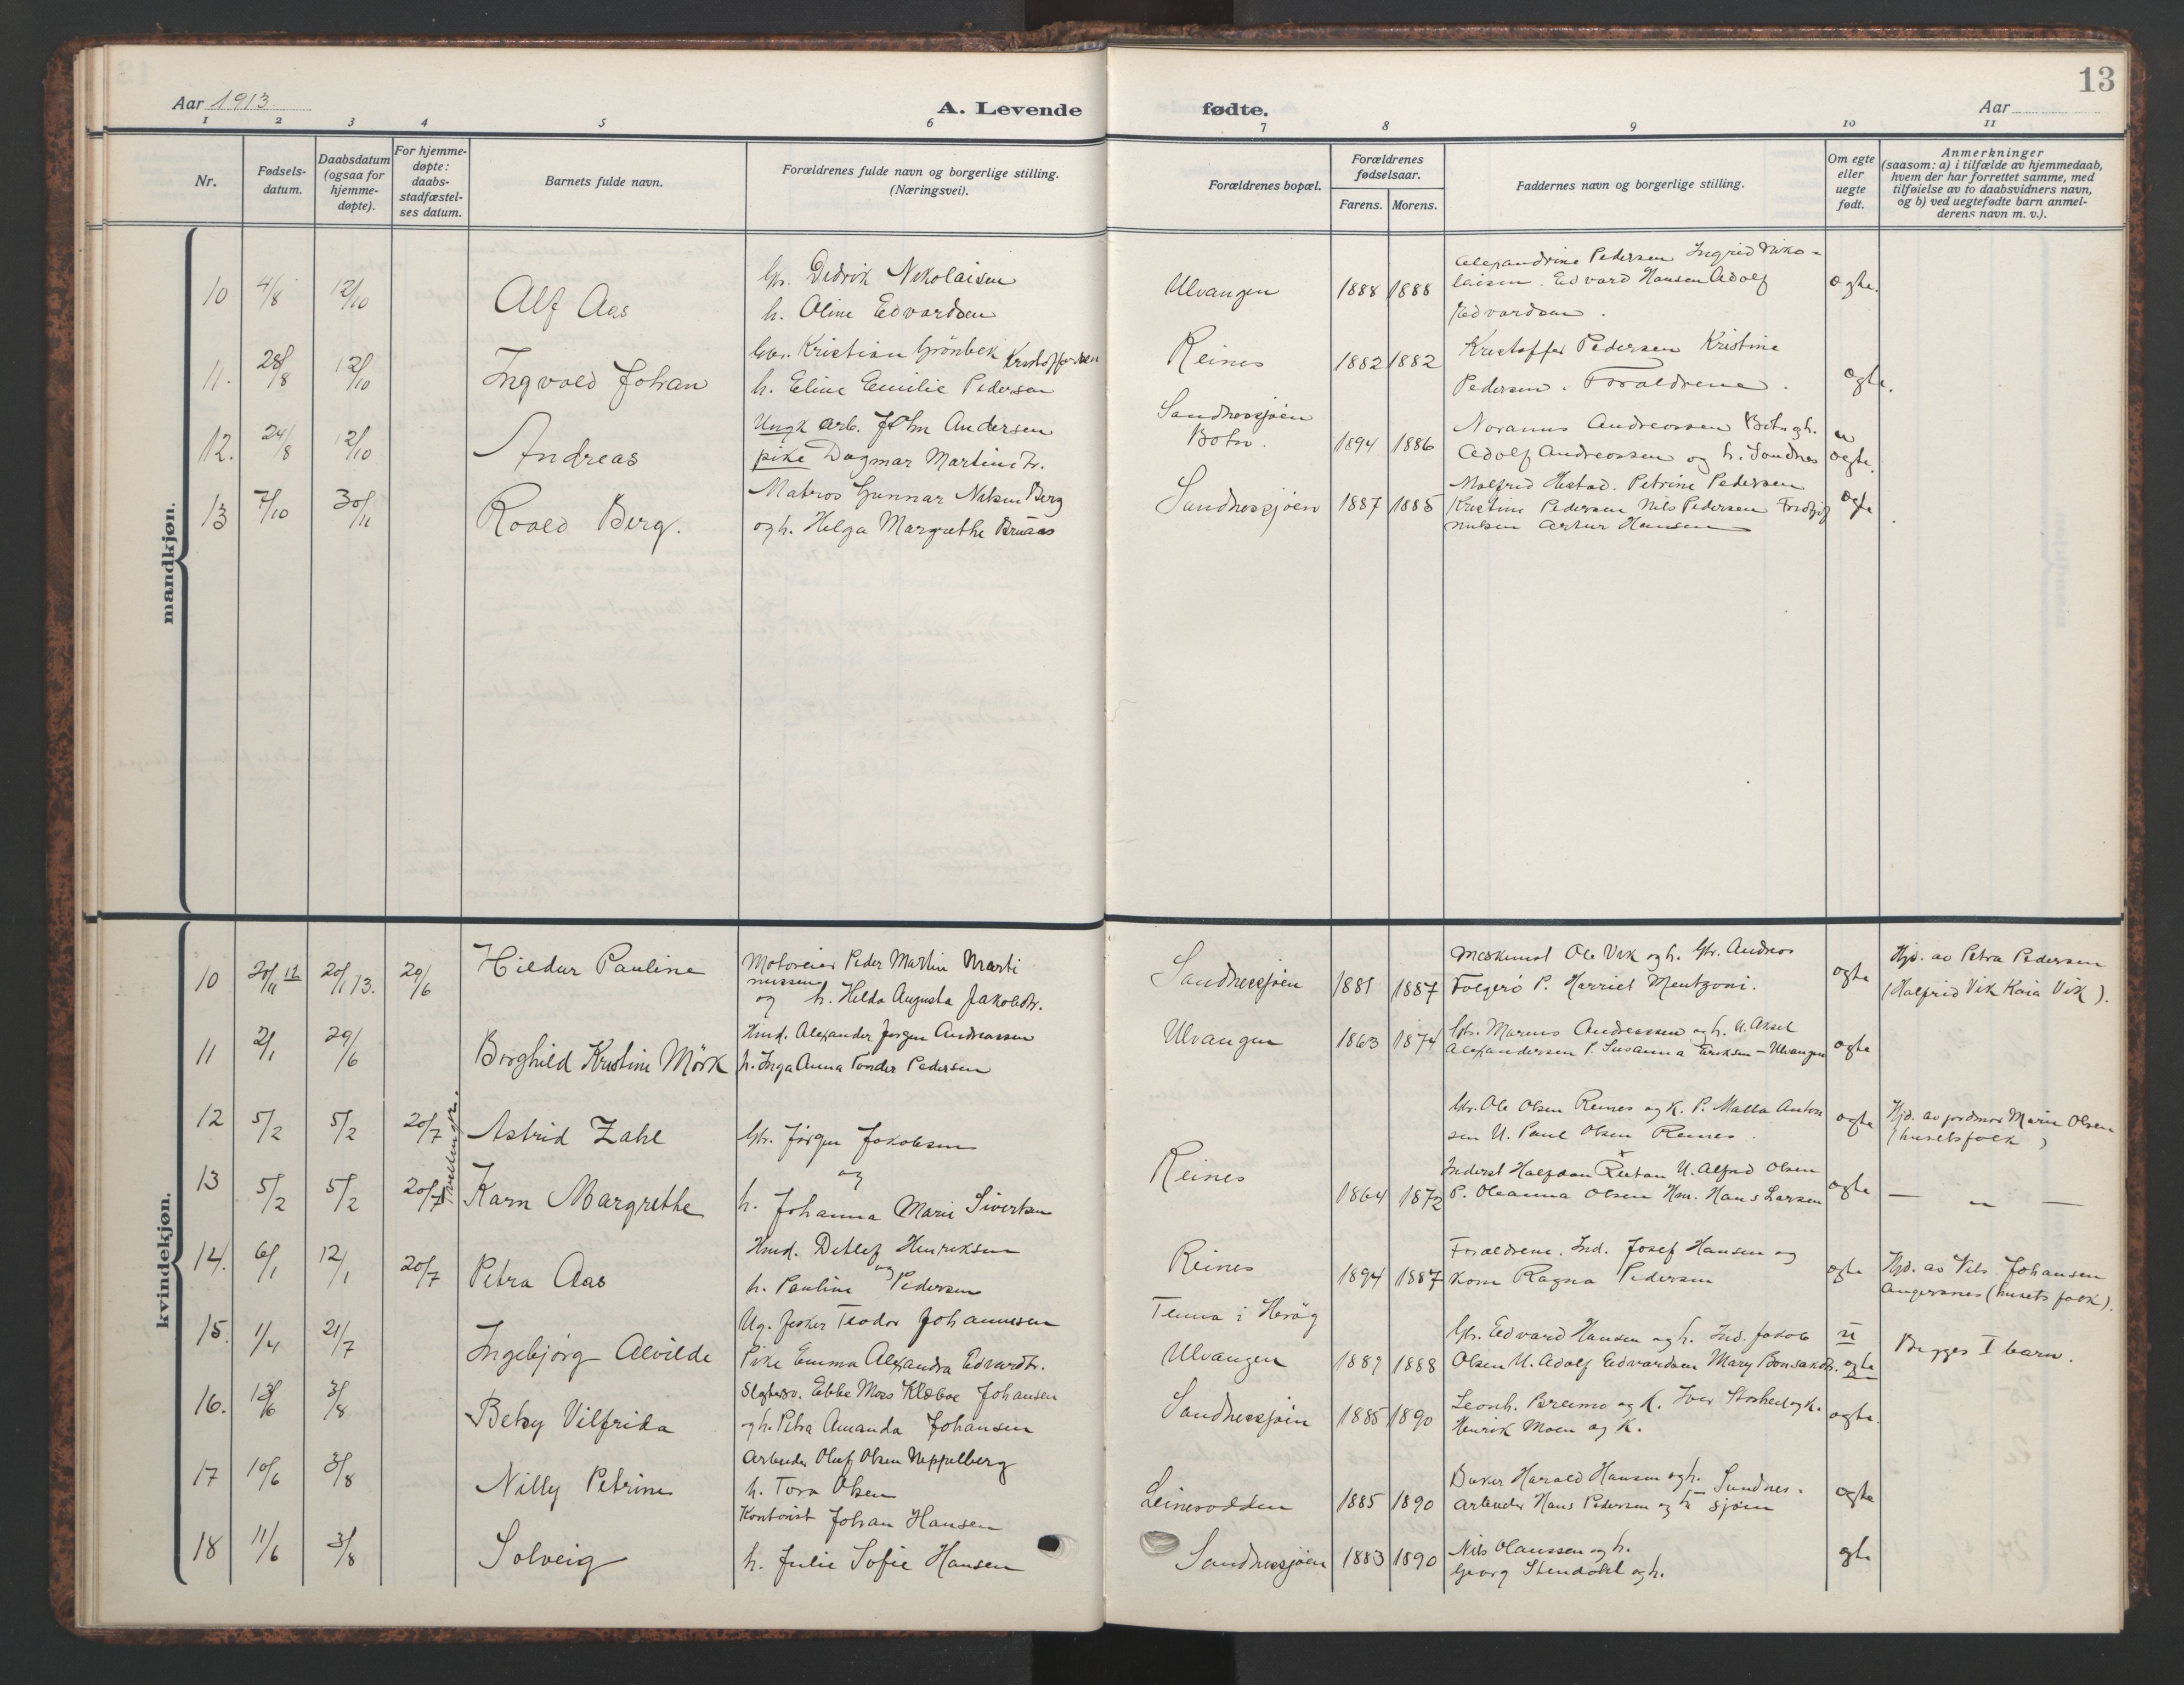 13
Aar 1913
A. Levende fødte.
Aar
1 2 3 4 5 6 7 8 9 10 11
Nr.
Fødsels-
datum.
Daabsdatum
(ogsaa for
hjemme-
døpte).
For hjemme-
døpte:
daabs-
stadfæstel-
ses datum.
Barnets fulde navn.
Forældrenes fulde navn og borgerlige stilling.
(Næringsvei).
Forældrenes bopæl.
Forældrenes
fødselsaar.
Farens. Morens.
Faddernes navn og borgerlige stilling.
Om egte
eller
uegte
født.
Anmerkninger
(saasom: a) i tilfælde av hjemmedaab,
hvem der har forrettet samme, med
tilføielse av to daabsvidners navn,
og b) ved uegtefødte barn anmel-
derens navn m. v.).
mandkjøn.
10 4/8 12/10 Alf Aas
Gbr. Dedrik Nikolaisen
h. Oline Edvardsen
Ulvangen 1888 1888
Alexandrine Pedersen Ingrid Niko-
laisen. Edvard Hansen Adolf
Edvardsen.
egte.
11. 28/8 12/10 Ingvald Johan
Gbr. Kristian Grönbek Kristoffersen
h. Eline Emilie Pedersen
Reines 1882 1882
Kristoffer Pedersen Kristine
Pedersen. Forældrene.
egte.
12. 24/8 12/10 Andreas
Ungk arb. John Andersen
pike Dagmar Martinsdtr.
Sandnessjöen
Botn. 1894 1886
Andreassen Botn og h.
Adolf Andreassen og h. Sandnes
u
egte.
13 7/10 30/11 Roald Berg.
Matros Gunnar Nilsen Berg
og h. Helga Margrethe Bruaas
Sandnessjöen 1887 1885
Petrine Pedersen
Kristine Pedersen Nils Pedersen Fridtjof
Nilsen Artur Hansen
egte
kvindekjøn.
10 20/11 12 20/1 13. 29/6 Hildur Pauline
Motoreier Peder Martin Marti
nussen
og h. Hilda Augusta Jakobsdtr.
Sandnessjöen 1881 1887
Maskinist Ole Vik og h. Gbr. Andreas
Folgerö P. Harriet Mentzoni.
egte
Hjd. av Petra Pedersen
(Halfrid Vik Kaia Vik).
11 2/1 29/6 Borghild Kristine Mörk
Hmd. Alexander Jörgen Andreassen
h. Inga Anna Tonder Pedersen
Ulvangen 1863 1874
Gbr. Marius Andreassen og h. U. Aksel
Alexandersen P. Susanna Eriksen - Ulvangen
egte
12 5/2 5/2 20/7 Tvillinger. Astrid Zahl
Gbr. Jörgen Jakobsen
og
Gbr. Ole Olsen Reines og K. P. Malla Anton
sen U. Paul Olsen Reines.
egte
Hjd. av jordmor Marie Olsen
(husets folk)
13 5/2 5/2 20/7 Karn Margrethe
h. Johanna Marie Sivertsen
Reines 1864 1872
Inderst Halfdan U. Alfred Olsen
P. Oleanna Olsen Hm. Hans Larsen
egte
— — —
14. 6/1 12/1 20/7 Petra Aas
Hmd. Detlef Henriksen
og
h. Pauline Pedersen
Reines 1894 1887
Forældrene. Ind. Josef Hansen og
Kone Ragna Pedersen
egte
Hjd. av Nils Johansen
Angersnes (husets folk).
15. 1/4 21/7 Ingebjörg Alvilde
Ug. fisker Teodor Johannesen
Pike Emma Alexandra Edvardtr.
Tenna i Heröy
Ulvangen 1889 1888
Gbr. Edvard Hansen og h. Ind. Jakob
Olsen U. Adolf Edvardsen Mary Bonsaksdtr.
u
egte
Begges I barn.
16. 13/6 3/8 Betsy Vilfrida
Ebbe Moss Klæboe Johansen
og h. Petra Amanda Johansen
Sandnessjöen 1885 1890
Leonh. Breimo og K. Iver Storheil og K.
Henrik Moen og K.
egte.
17 10/6 3/8 Nilly Petrine
Arbeider Oluf Olsen Neppelberg
h. Tora Olsen
Leinesodden 1885 1890
Harald Hansen og h. Sandnes-
Arbeider Hans Pedersen og h sjöen
egte
18 11/6 3/8 Solveig
Kontorist Johan Hansen
h. Julie Sofie Hansen
Sandnessjöen 1883 1890
Nils Olaussen og h.
Georg Stendahl og h.
egte